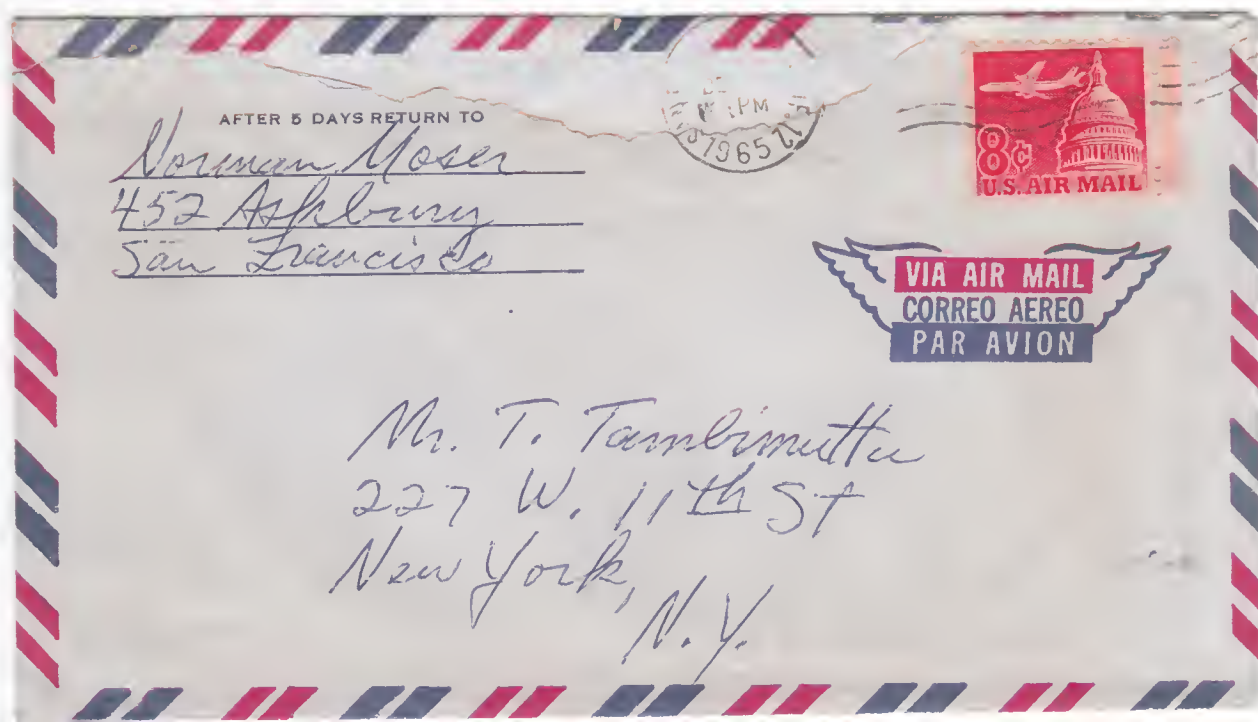 AFTER 5 DAYS RETURN TO
Norman Moser
452 Ashbury
San Francisco
PM
1965
8¢
U.S. AIR MAIL
VIA AIR MAIL
CORREO AEREO
PAR AVION
Mr. T. Tambimuttu
227 W. 11th St
New York,
N.Y.